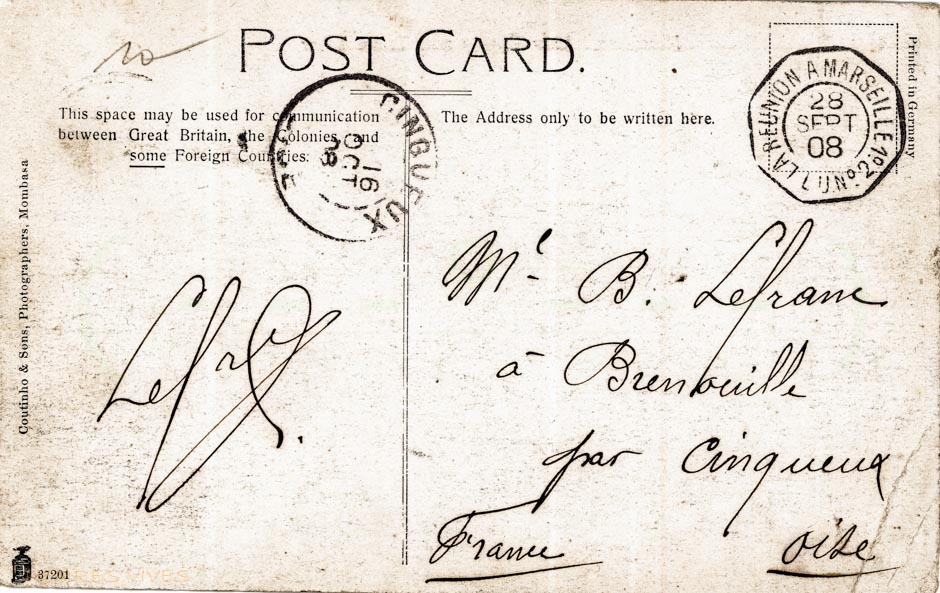 10
POST CARD.
This space may be used for communication
between Great Britain, the Colonies, and
some Foreign Countries:
The Address only to be written here.
CINQUEUX
16
OCT
08
OISE
LA REUNION A MARSEILLE
28
SEPT
08
L U Nº 2
Printed in Germany
Coutinho & Sons, Photographers, Mombasa
Mr B. Lefranc
à Brenouille
par Cinqueux
France Oise
37201